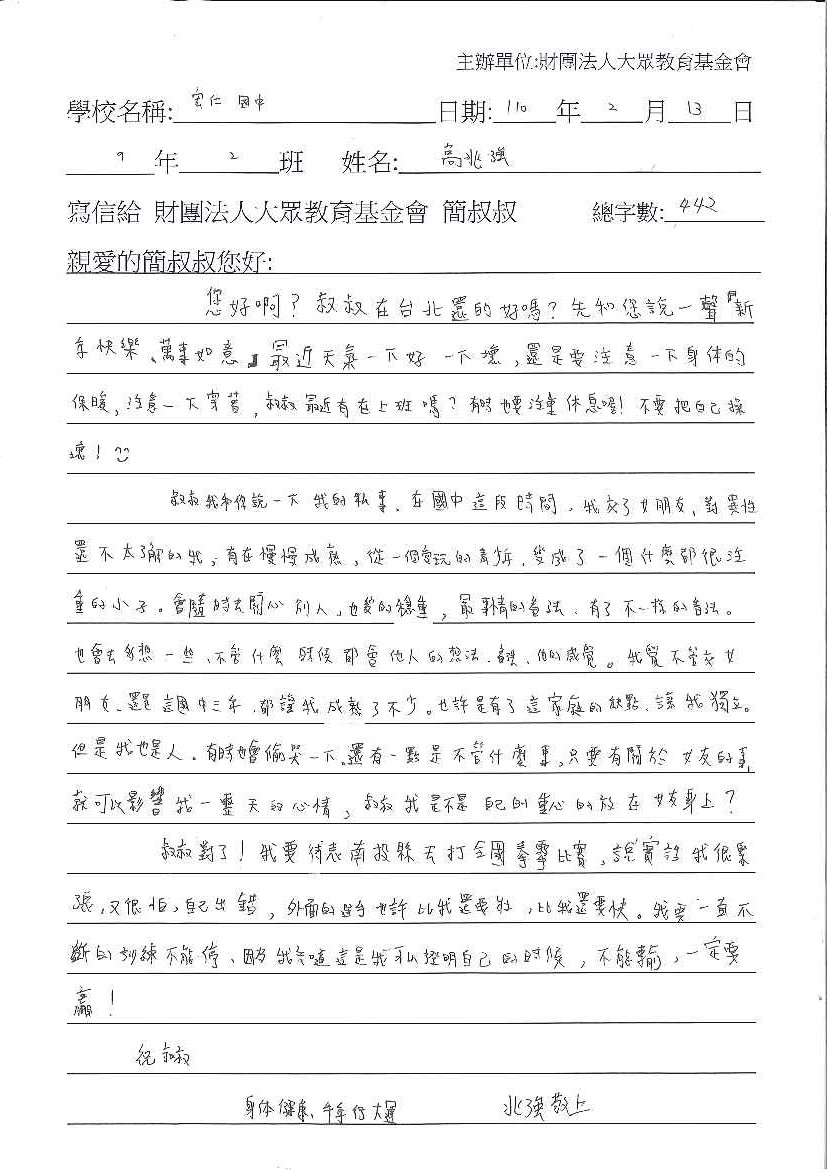 主辦單位:財團法人大眾教育基金會
學校名稱: 宏仁 國中 日期: 110 年 2 月 13 日
9 年 2 班 姓名: 高兆強
寫信給 財團法人大眾教育基金會 簡叔叔 總字數: 442
親愛的簡叔叔您好:
您好啊？叔叔在台北還的好嗎？先和您說一聲『新
年快樂、萬事如意』最近天氣一下好 一下壞，還是要注意一下身体的
保暖，注意一下穿著，叔叔最近有在上班嗎？有時也要注重休息喔！不要把自己操
壞！
叔叔我和你說一下 我的私事、在國中這段時間，我交了女朋友、對異性
還不太了解的我，有在慢慢成熟，從一個愛玩的，變成了一個什麼都很注
重的小子。會隨時去關心 別人，也變的穩重，事情的看法、有了不一樣的看法。
也會去多想一些、不管什麼 時候都會他人的想法、他的感覺。我覺不管交女
朋友、還是這國中三年、都讓我成熟了不少。也許是有了這家庭的缺點、讓我獨立。
但是我也是人。有時也會偷哭一下。還有一點是不管什麼事，只要有關於 女友的事，
就可以影響我一整天的心情，叔叔我是不是自己的重心的放在女友身上？
叔叔對了！我要待表南投縣去打全國拳擊比賽，說實話我很緊
張，又很怕，自己出錯，外面的選手也許比我還要壯，比我還要快。我要一直不
斷的訓練不能停、因為我知道這是我可以證明自己的時候，不能輸，一定要
贏！
祝叔叔
身体健康、牛年行大運 兆強敬上